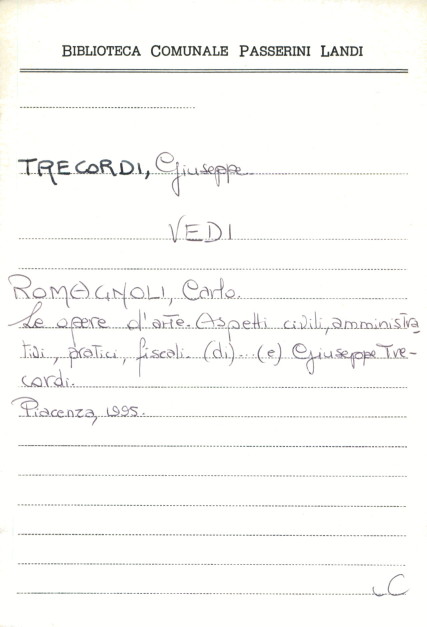 BIBLIOTECA COMUNALE PASSERINI LANDI
TRECORDI, Giuseppe
VEDI
ROMAGNOLI, Carlo.
Le opere d'arte. Aspetti civili, amministra
tivi, pratici, fiscali. (di)... (e) Giuseppe Tre-
cordi.
Piacenza, 1995.
LC